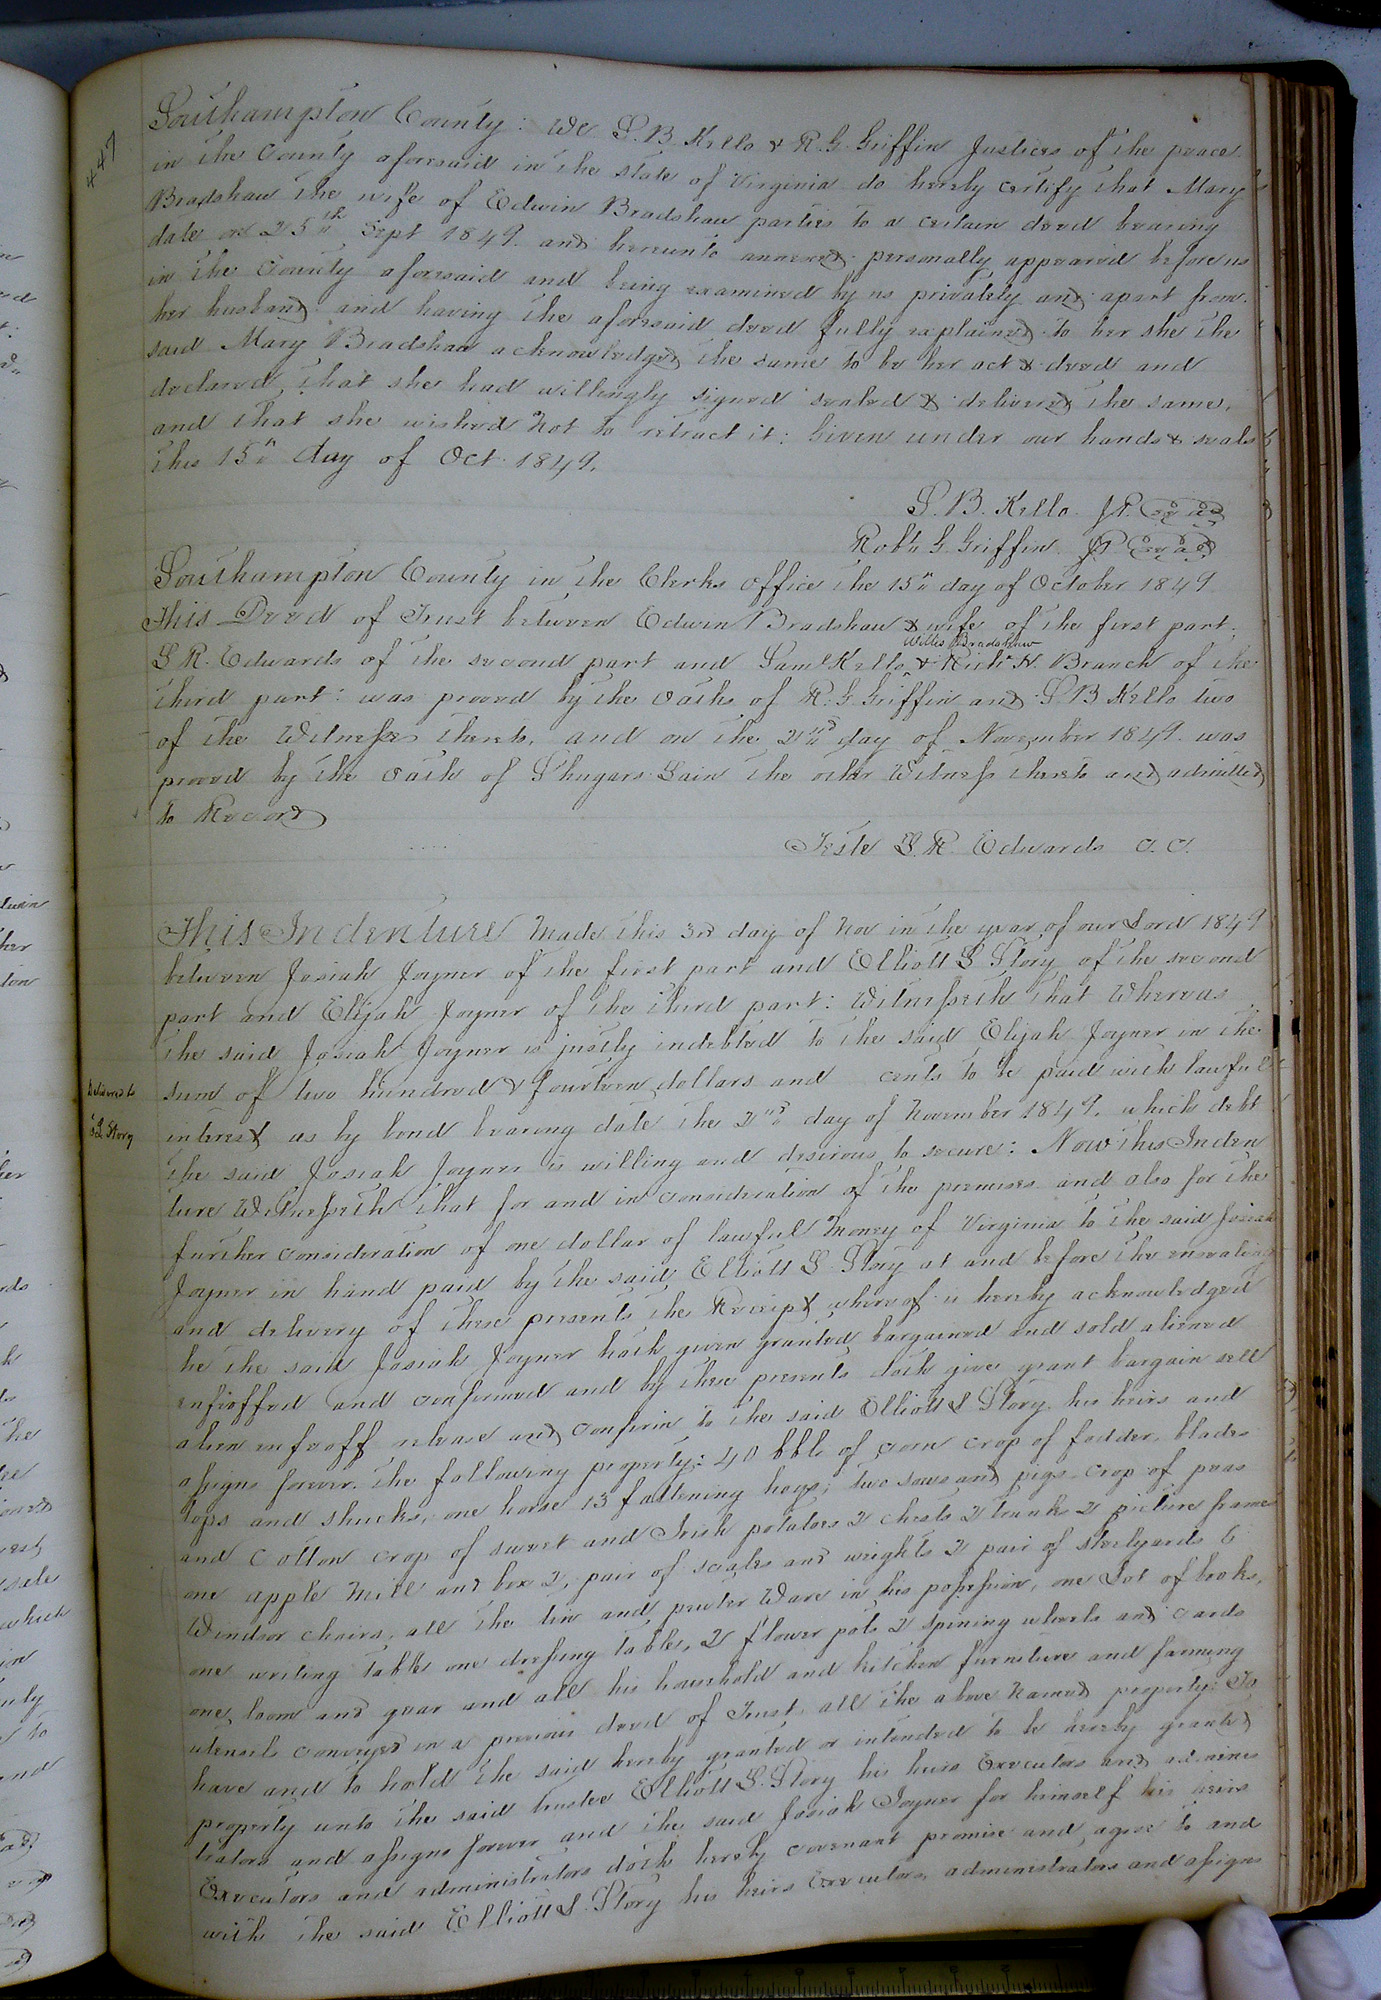 447
Southampton County: We S. B. Kello & R. G. Griffin Justices of the peace
in the County aforesaid in the state of Virginia do hereby certify that Mary
Bradshaw the wife of Edwin Bradshaw parties to a certain deed bearing
date on 25th Sept 1849. and hereunto annexed personally appeared before us
in the County aforesaid and being examined by us privately and apart from
her husband and having the aforesaid deed fully explained to her she the
said Mary Bradshaw acknowledged the same to be her act & deed and
declared that she had willingly signed sealed & delivered the same,
and that she wished not to retract it: Given under our hands & seals
this 15th day of Oct. 1849.
S. B. Kello JP. Seal
Robt G Griffin JP Seal
Southampton County in the Clerks office the 15th day of October 1849
This Deed of Trust between Edwin Bradshaw & wife of the first part;
Willis Bradshaw
L R. Edwards of the second part and Saml Kello & Richd H. Branch of the
third part: was proved by the oaths of R. G Griffin and S B Kello two
of the Witnesses thereto, and on the 2nd day of November 1849. was
proved by the oath of Shugars Lain the other Witness thereto and admitted
to Record
Teste L. R. Edwards C. C.
This Indenture Made this 3rd day of Nov in the year of our Lord 1849
between Josiah Joyner of the first part and Elliott L Story of the second
part and Elijah Joyner of the third part: Witnesseth that Whereas
the said Josiah Joyner is justly indebted to the said Elijah Joyner in the
Delivered to
sum of two hundred & fourteen dollars and cents to be paid with lawful
E L Story
interest as by bond bearing date the 2nd day of November 1849. which debt
the said Josiah Joyner is willing and desirous to secure: Now this Inden
ture Witnesseth that for and in consideration of the premises and also for the
further consideration of one dollar of lawful money of Virginia to the said Josiah
Joyner in hand paid by the said Elliott L Story at and before the ensealing
and delivery of these presents the Receipt whereof is hereby acknowledged
he the said Josiah Joyner hath given granted bargained and sold aliened
enfeoffed and confirmed and by these presents doth give grant bargain sell
alien enfeoff release and confirm to the said Elliott L Story his heirs and
assigns forever. the following property: 40 bbls of corn crop of fodder, blades
tops and shucks, one horse 13 fattening hogs; two sows and pigs crop of peas
and Cotton crop of sweet and Irish potatoes 2 chests 2 trunks 2 picture frames
one apple Mill and box 2, pair of scales and weights 2 pair of steelyards 6
Windsor chairs, all the tin and pewter Ware in his possession, one Lot of books,
one writing table one dressing table, 2 flower pots 2 spining wheels and cards
one loom and gear and all his household and kitchen furniture and farming
utensils conveyed in a previous deed of Trust all the above named property: To
have and to hold the said hereby granted or intended to be hereby granted
property unto the said trustee Elliott L. Story his heirs Executors and adminis
trators and assigns forever and the said Josiah Joyner for himself his heirs
Executors and administrators doth hereby covenant promise and agree to and
with the said Elliott L. Story his heirs Executors, administrators and assigns